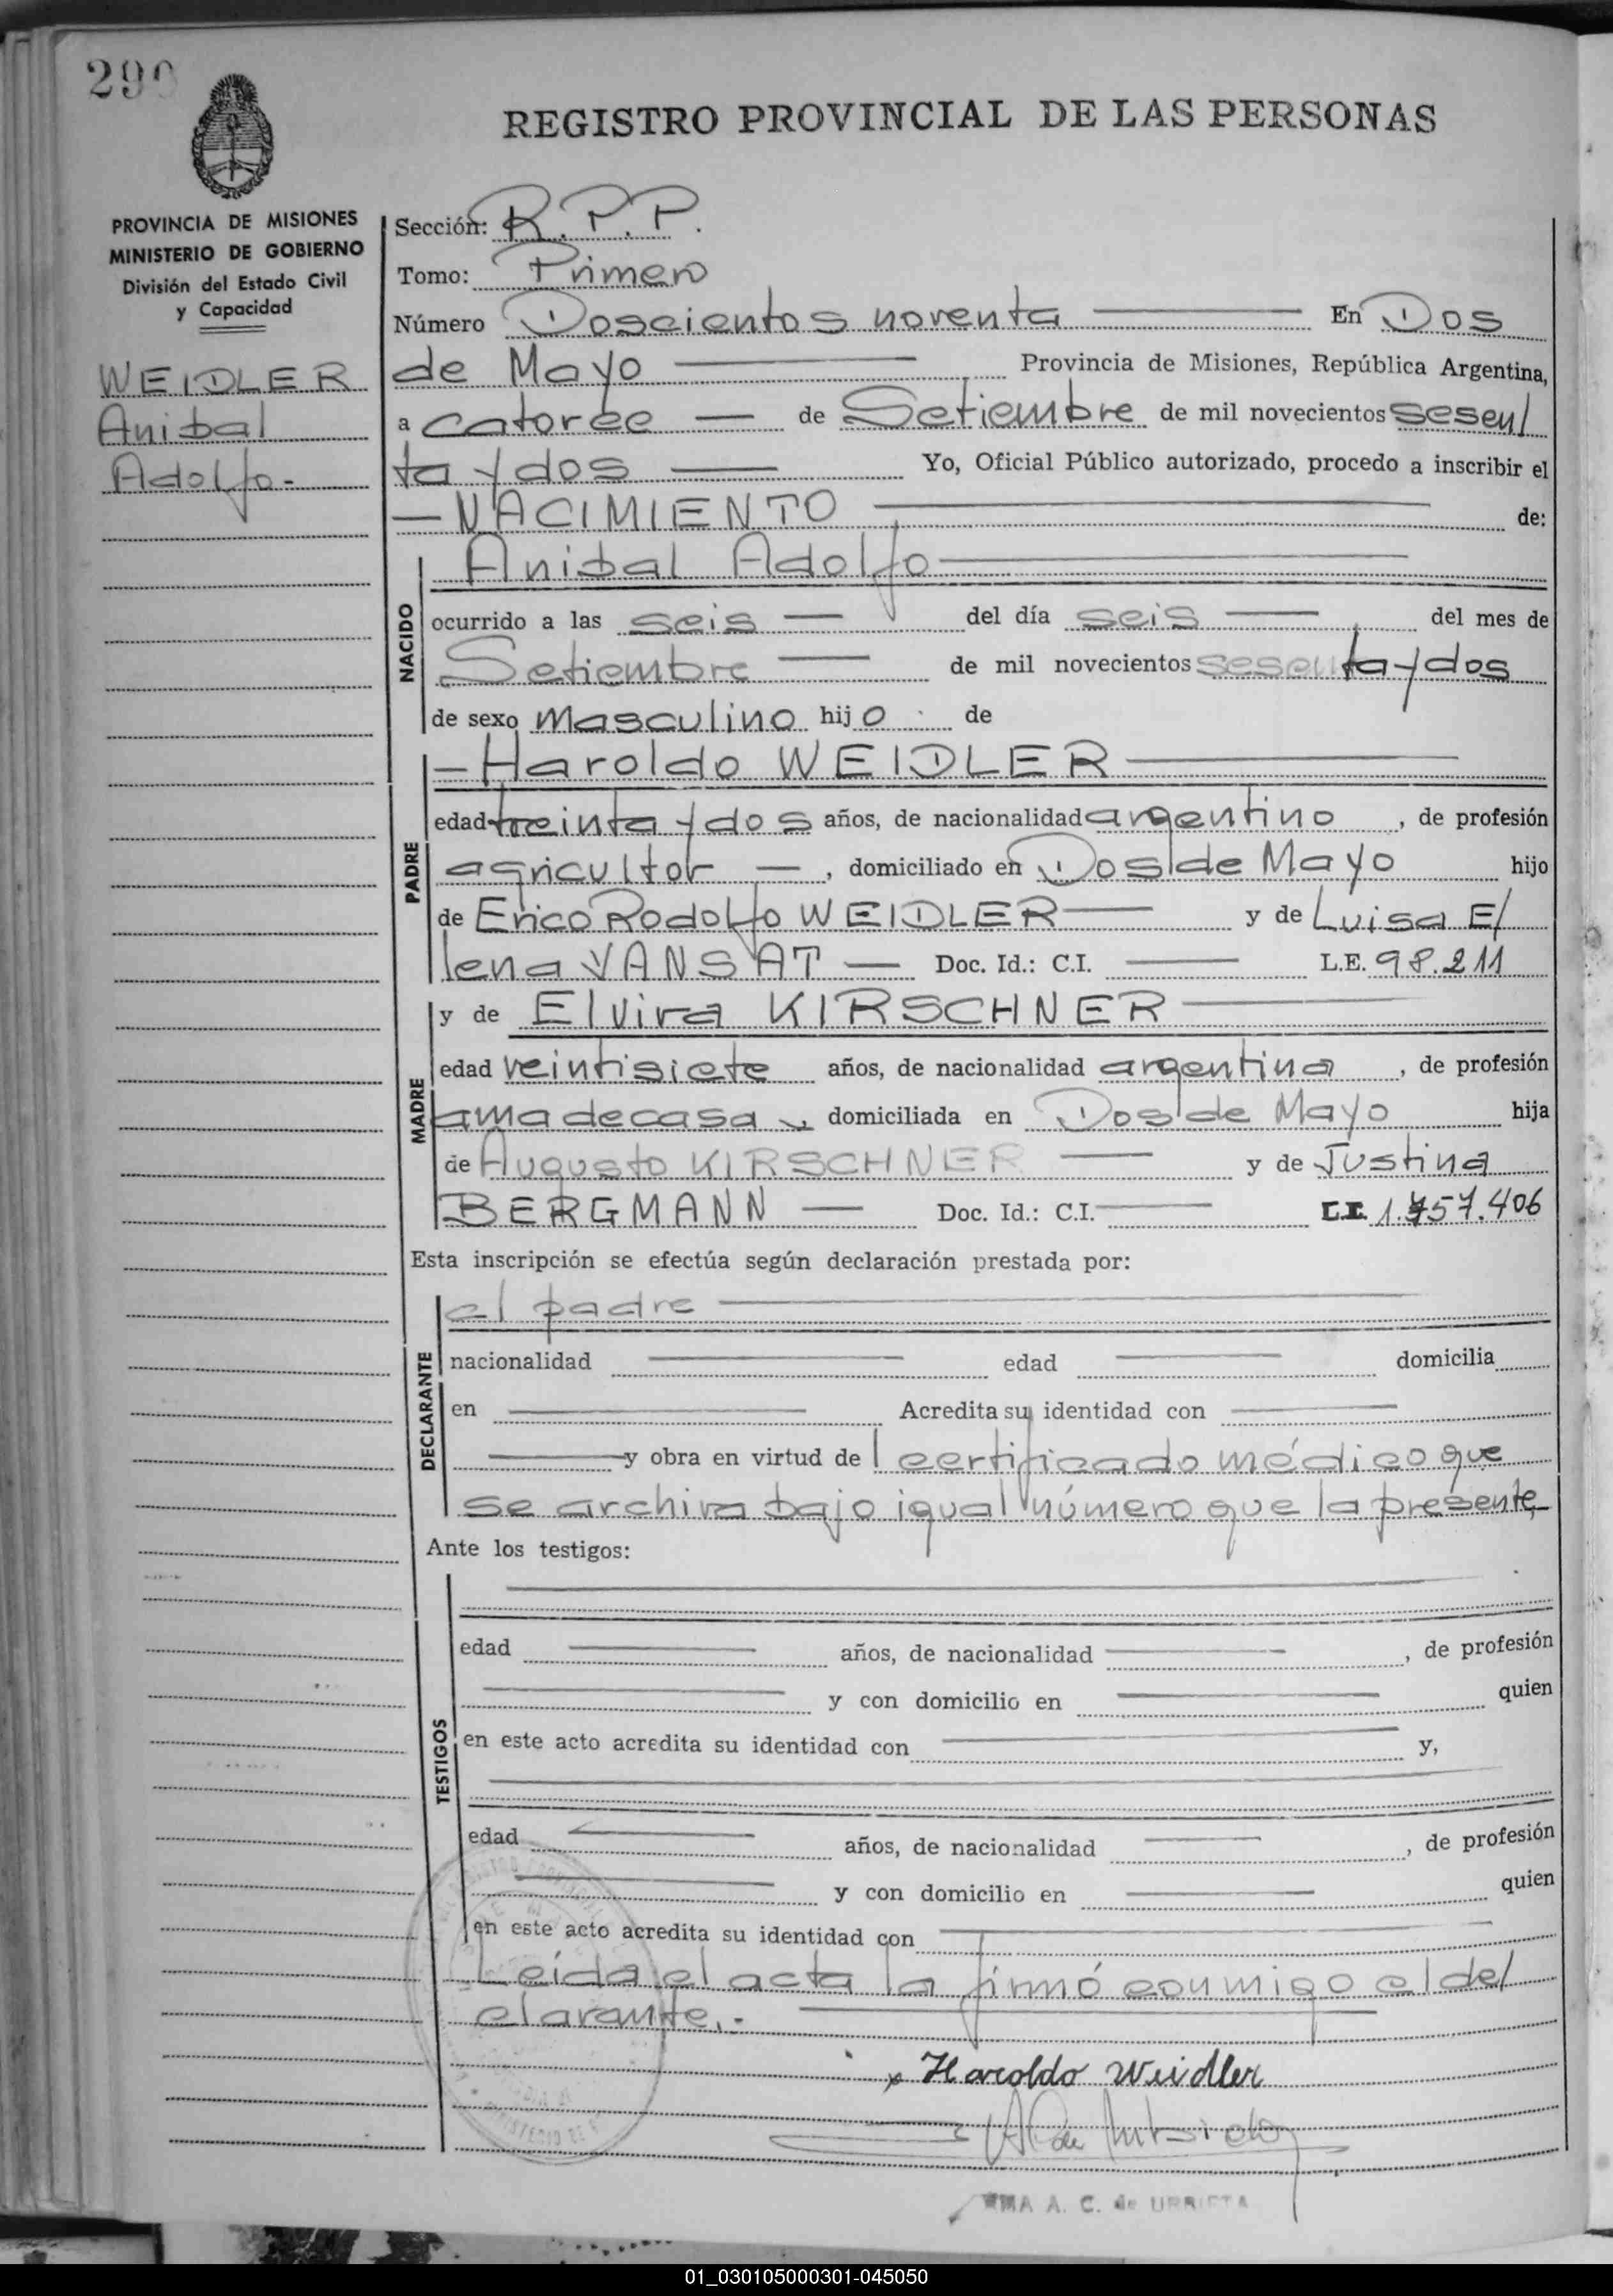 290
REGISTRO PROVINCIAL DE LAS PERSONAS
PROVINCIA DE MISIONES
MINISTERIO DE GOBIERNO
División del Estado Civil
y Capacidad
WEIDLER
Anibal
Adolfo.-
Sección: R.P.P.
Tomo: Primero
Número Doscientos noventa En Dos
de Mayo Provincia de Misiones, República Argentina,
a catorce de Setiembre de mil novecientos sesen/
ta y dos Yo, Oficial Público autorizado, procedo a inscribir el
NACIMIENTO de:
NACIDO
Anibal Adolfo
ocurrido a las seis del día seis del mes de
Setiembre de mil novecientos sesenta y dos
de sexo masculino hijo de
PADRE
Haroldo WEIDLER
edad treinta y dos años, de nacionalidad argentino, de profesión
agricultor, domiciliado en Dos de Mayo hijo
de Erico Rodolfo WEIDLER y de Luisa E/
lena VANSAT Doc. Id.: C.I. L.E. 98.211
MADRE
y de Elvira KIRSCHNER
edad veintisiete años, de nacionalidad argentina, de profesión
ama de casa, domiciliada en Dos de Mayo hija
de Augusto KIRSCHNER y de Justina
BERGMANN Doc. Id.: C.I. 1.757.406
Esta inscripción se efectúa según declaración prestada por:
DECLARANTE
el padre
nacionalidad edad domicilia
en Acredita su identidad con
y obra en virtud del certificado médico que
se archiva bajo igual número que la presente,
Ante los testigos:
TESTIGOS
edad años, de nacionalidad , de profesión
y con domicilio en quien
en este acto acredita su identidad con y,
edad años, de nacionalidad , de profesión
y con domicilio en quien
en este acto acredita su identidad con
Leída el acta la firmó conmigo el de/
clarante.-
x Haroldo Weidler
A. C. de URRIETA
01_030105000301-045050